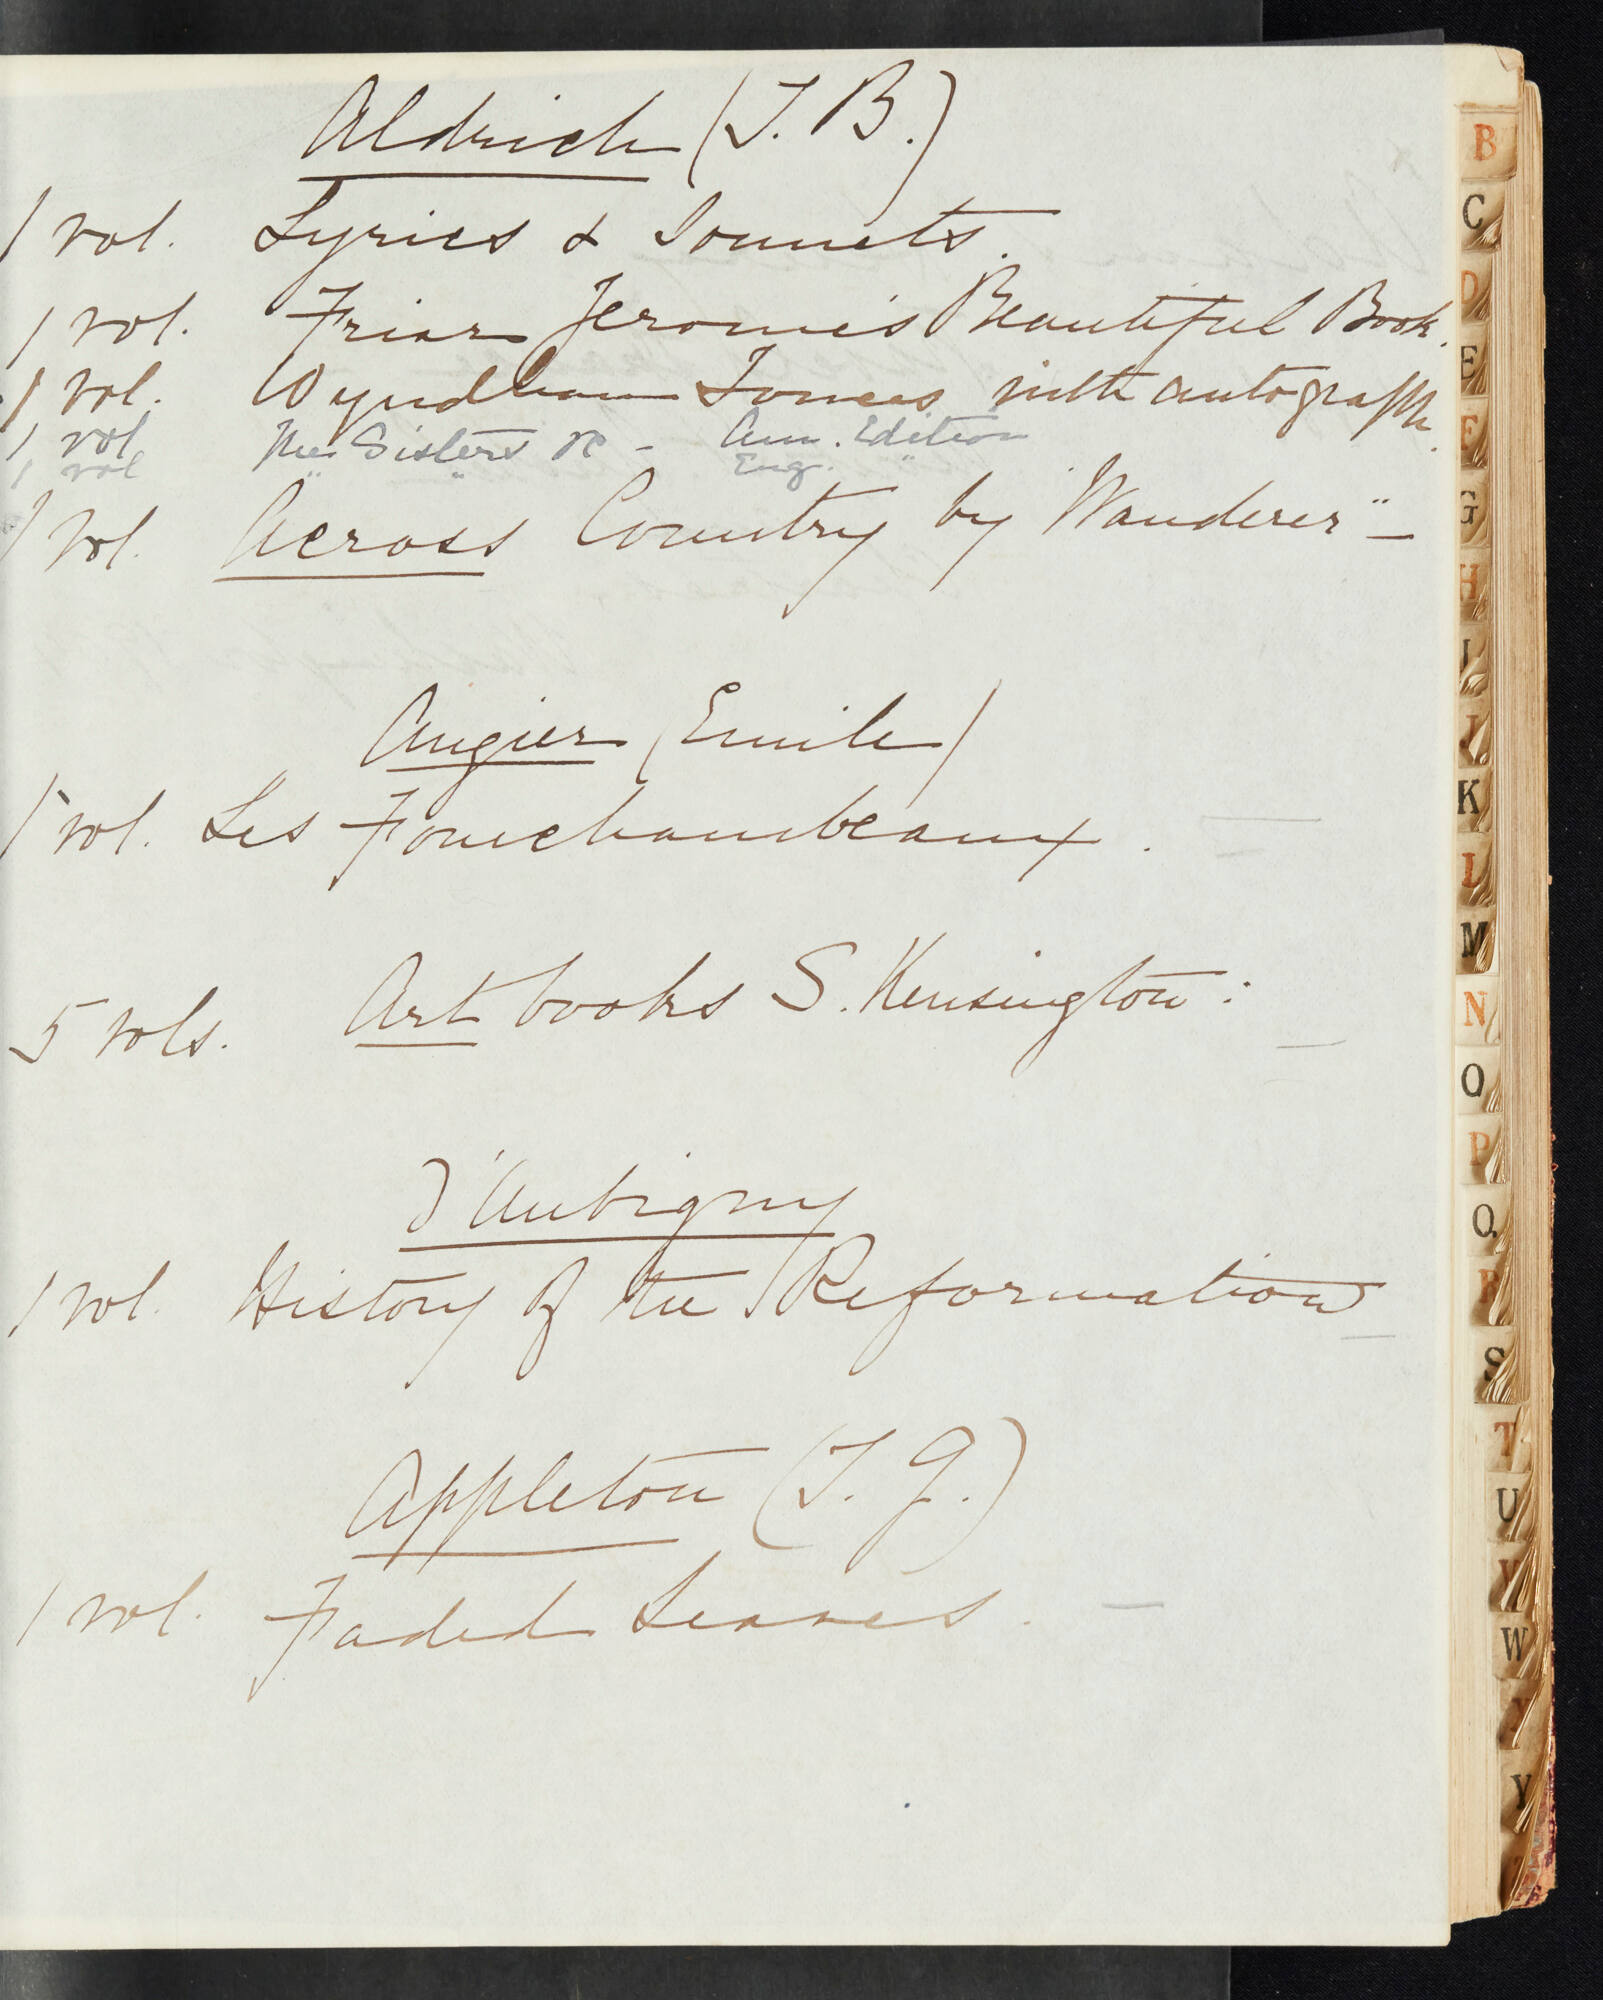 Aldrich (T. B.)
1 vol. Lyrics & Sonnets.
1 vol. Friar Jerome's Beautiful Book.
1 vol. Wyndham Towers with autograph.
1 vol The Sisters &c - Am. Edition
1 vol " " Eng. "
1 vol. Across Country by "Wanderer" —
Augier (Emile)
1 vol. Les Fourchambeaux.
5 vols. Art books S. Kensington:
D'Aubigny
1 vol. History of the Reformation
Appleton (T. G.)
1 vol. Faded Leaves.
B
C
D
E
F
G
H
I
J
K
L
M
N
O
P
Q
R
S
T
U
V
W
X
Y